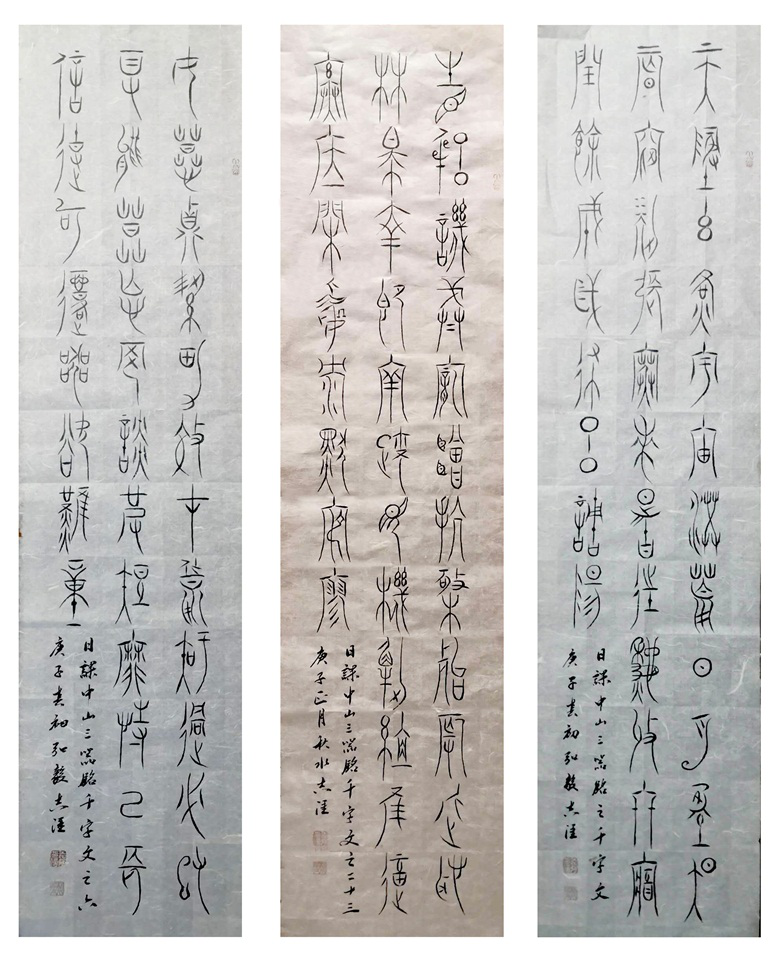 天地玄黃宇宙洪荒日月盈昃
辰宿列張寒來暑往秋收冬藏
閏餘成歲律呂調陽
日課中山三器銘之千字文
庚子春初弘毅志
省躬譏誡寵增抗極殆辱近恥
林皋幸即兩疏見機解組誰逼
索居閑處沉默寂寥
日課中山三器銘千字文之二十三
庚子正月秋水志
女慕貞潔男效才良知過必改
得能莫忘罔談彼短靡恃己長
信使可覆器欲難量
日課中山三器銘千字文之六
庚子春初弘毅志